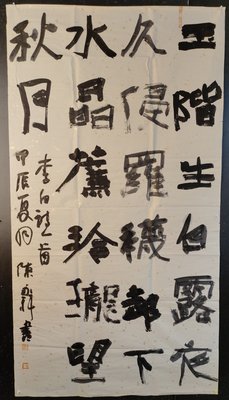 玉階生白露夜
久侵羅襪却下
水晶簾玲瓏望
秋月
李白詩首
甲辰夏月